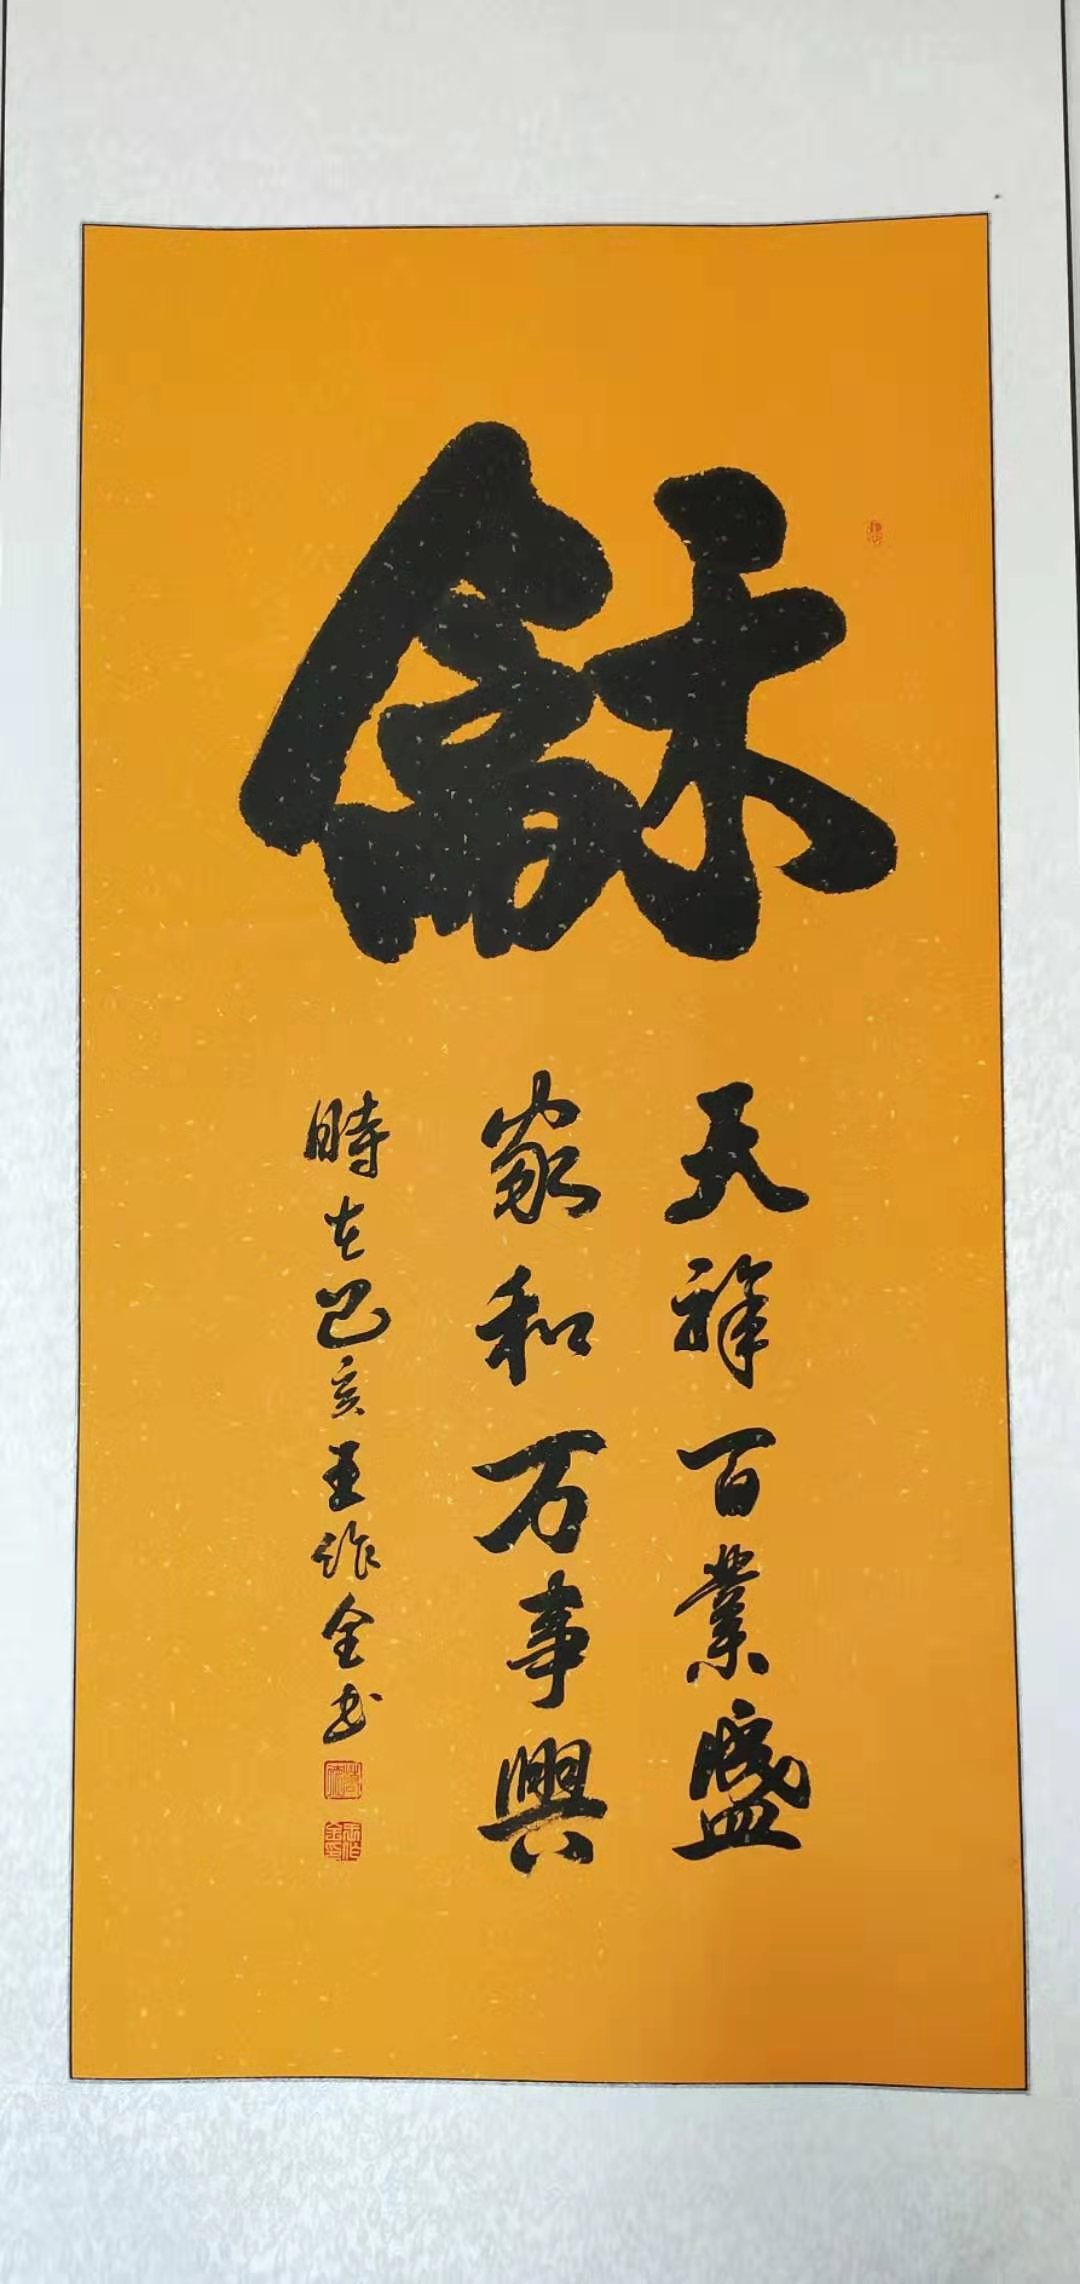 龢
天祥百業盛
家和万事興
時在己亥王作全书